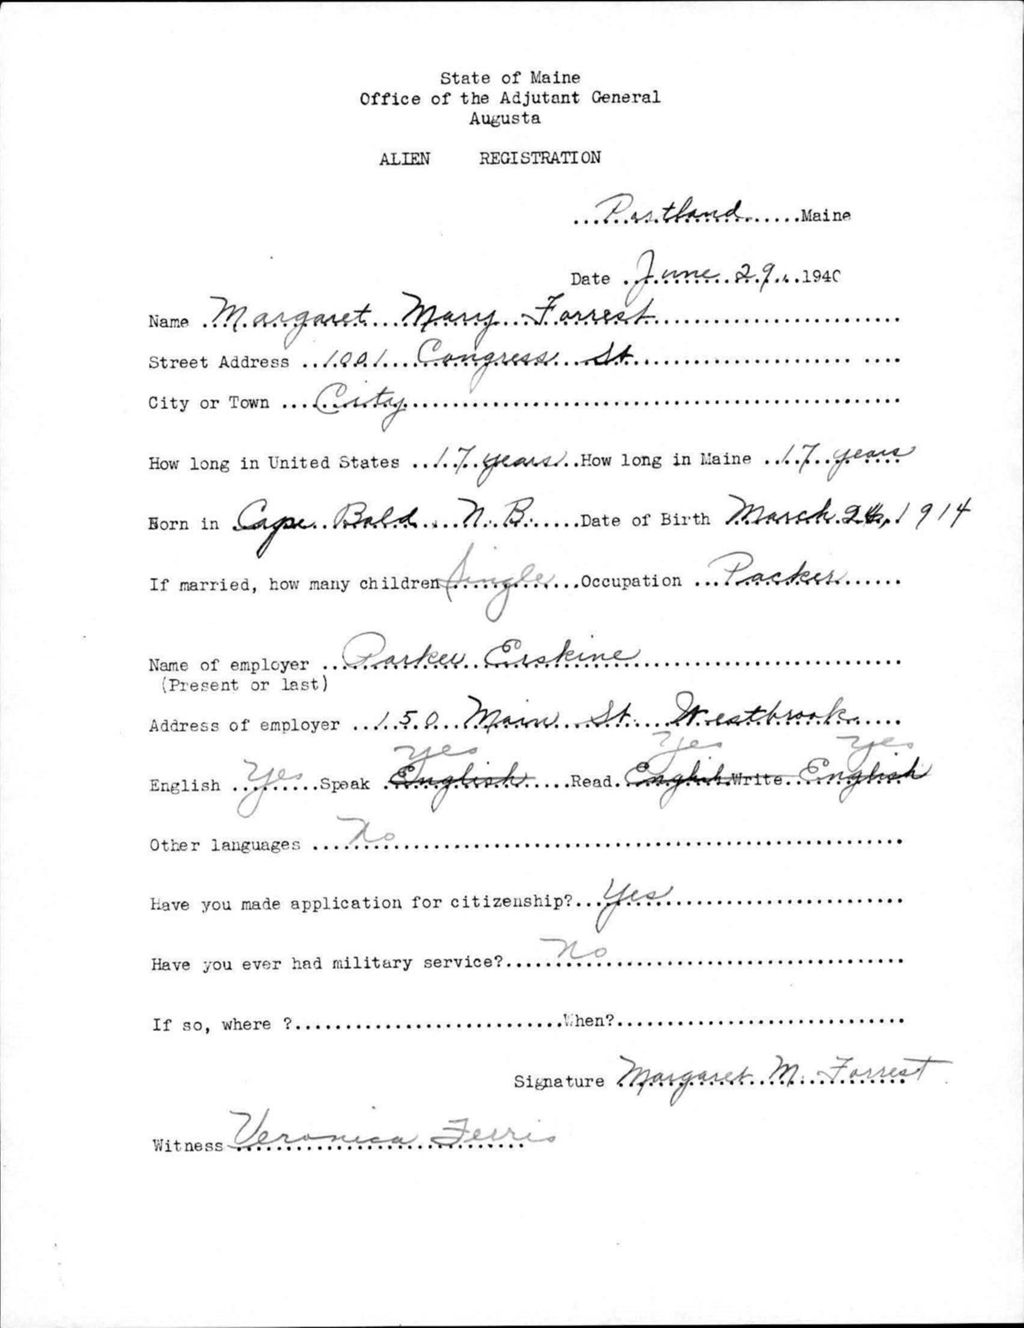 State of Maine
Office of the Adjutant General
Augusta
ALIEN REGISTRATION
Portland Maine
Date June 29, 1940
Name Margaret Mary Forrest
Street Address 1001 Congress St
City or Town City
How long in United States 17 years How long in Maine 17 years
Born in Cape Bald N.B. Date of Birth March 1914
If married, how many children Single Occupation Packer
Name of employer Parker Erskine
(Present or last)
Address of employer 150 Main St. Westbrook
yes Yes Yes
English Yes Speak English Read English Write English
Other languages No
Have you made application for citizenship? Yes
Have you ever had military service? No
If so, where ? When?
Signature Margaret M. Forrest
Witness Veronica Ferris